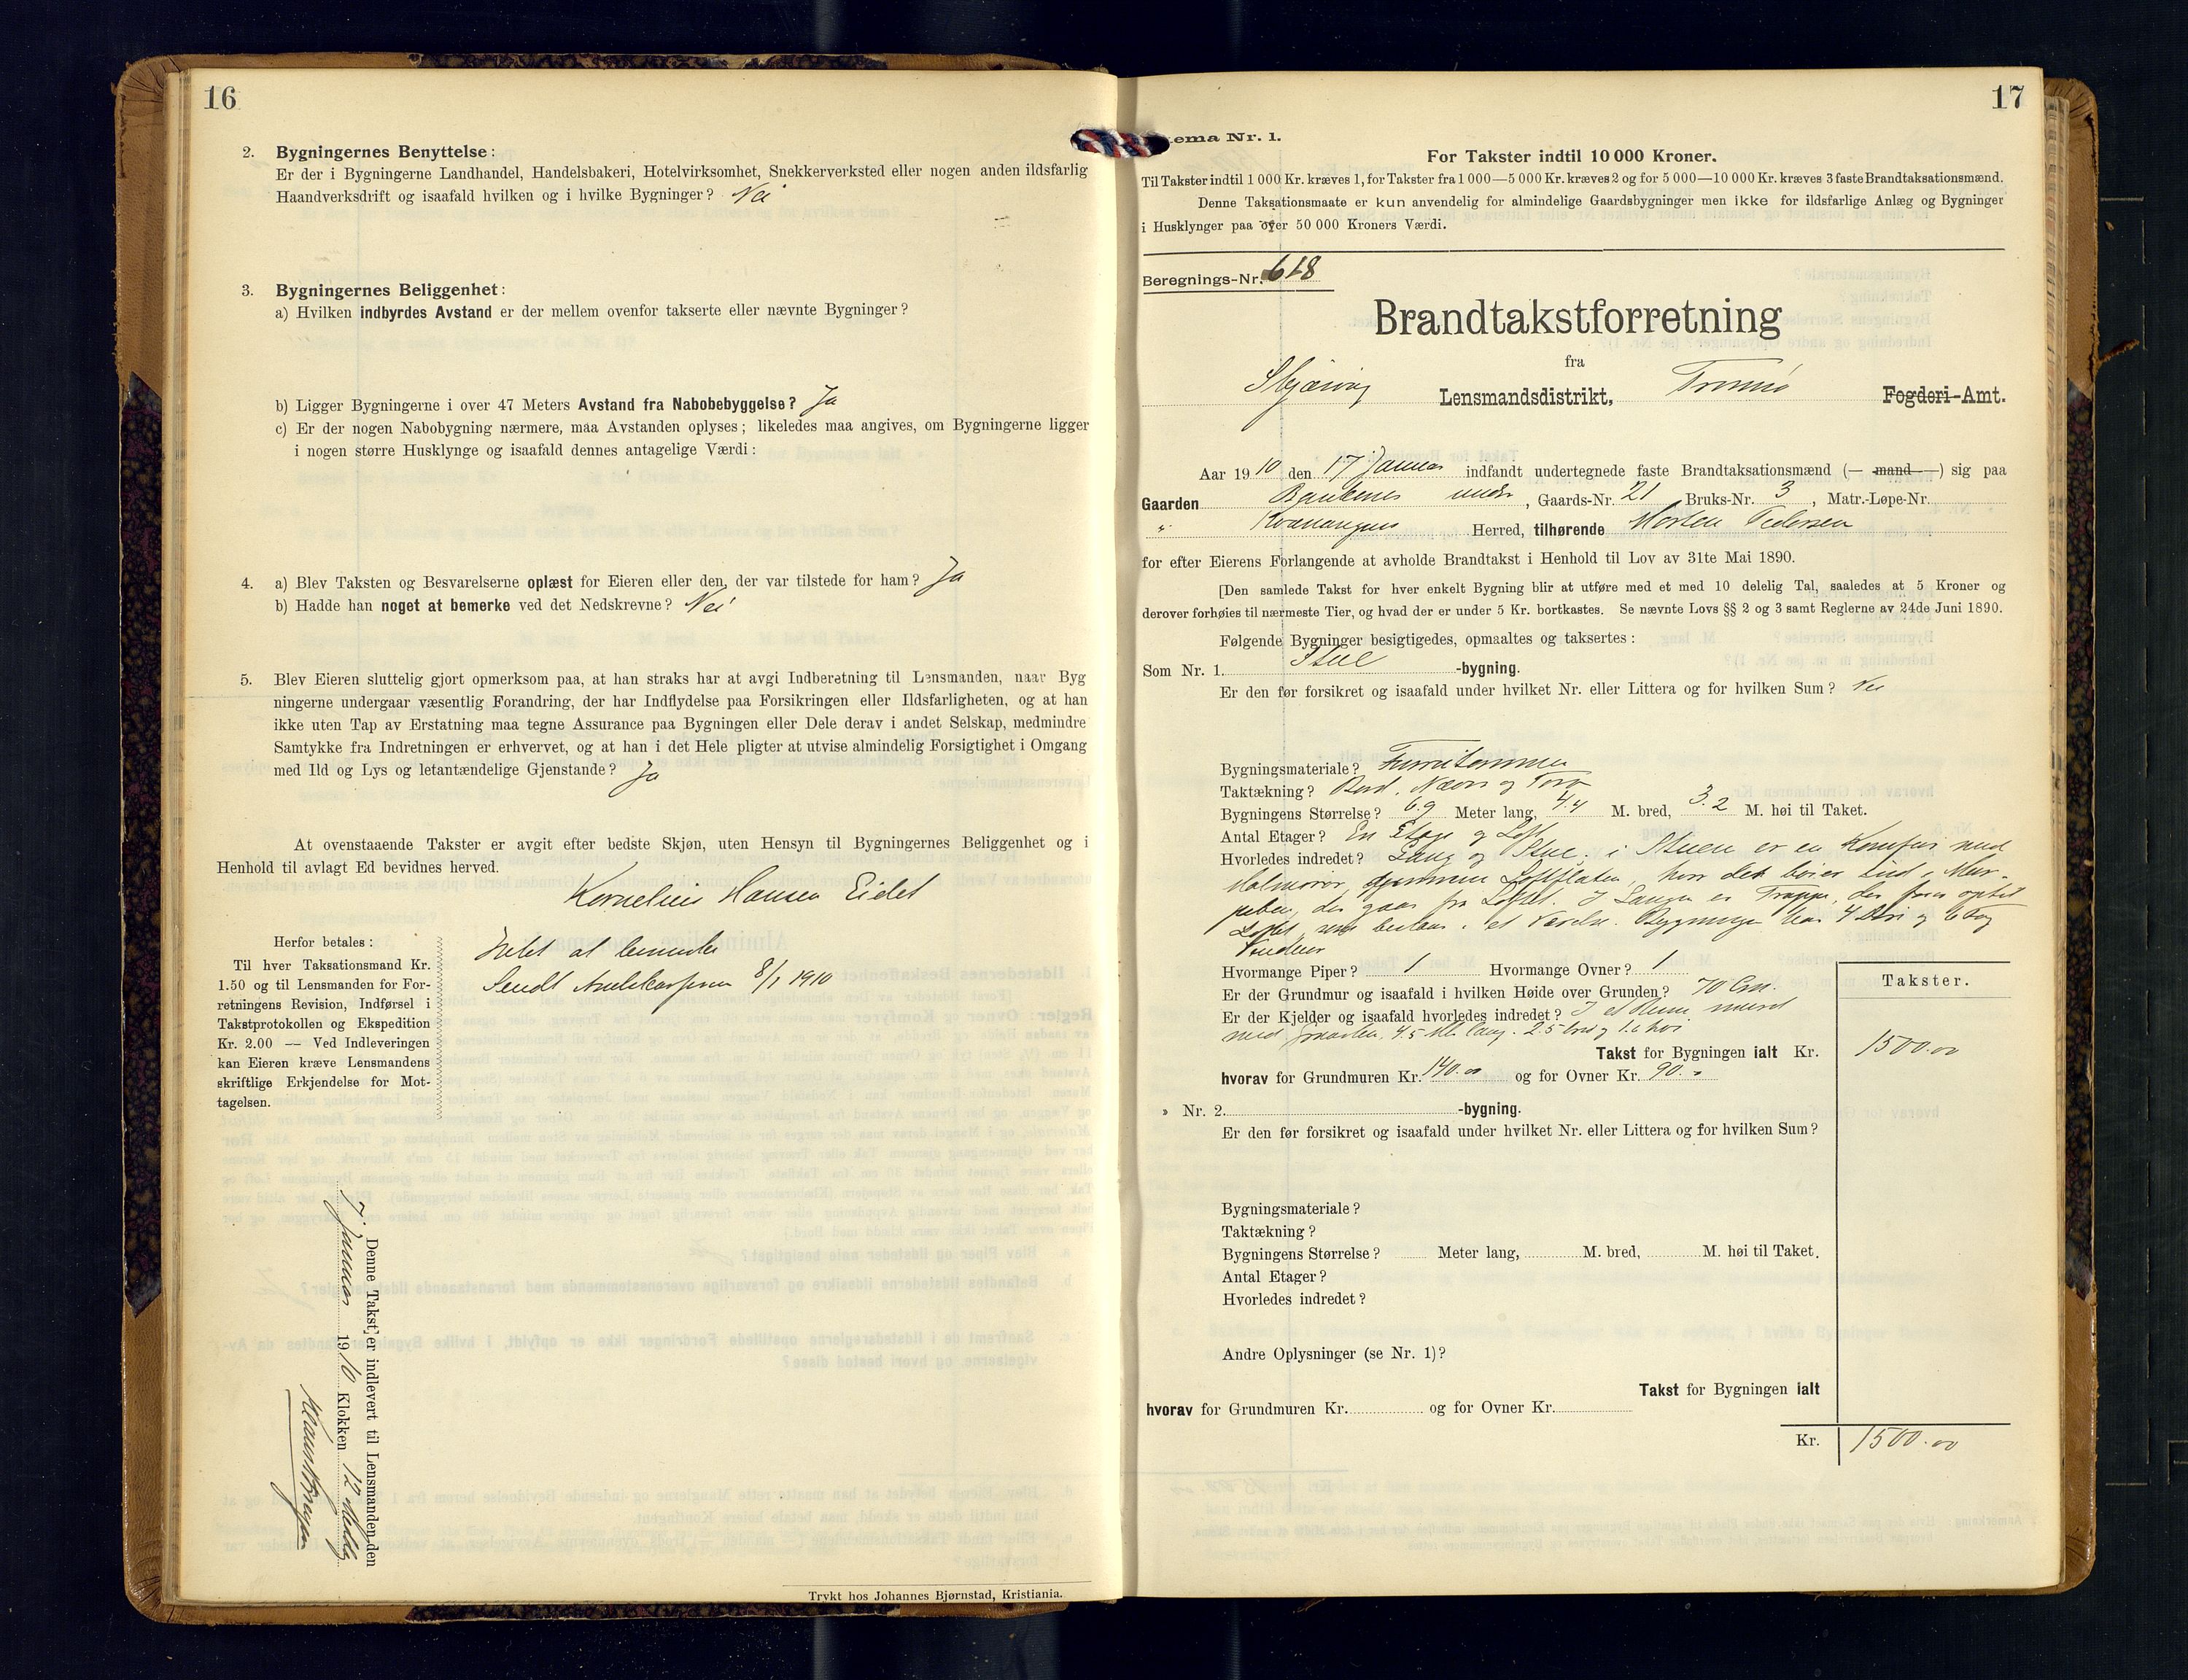 16
2. Bygningernes Benyttelse:
Er der i Bygningerne Landhandel, Handelsbakeri, Hotelvirksomhet, Snekkerverksted eller nogen anden ildsfarlig
Haandverksdrift og isaafald hvilken og i hvilke Bygninger? Nei
3. Bygningernes Beliggenhet:
a) Hvilken indbyrdes Avstand er der mellem ovenfor takserte eller nævnte Bygninger?
b) Ligger Bygningerne i over 47 Meters Avstand fra Nabobebyggelse? Ja
c) Er der nogen Nabobygning nærmere, maa Avstanden oplyses; likeledes maa angives, om Bygningerne ligger
i nogen større Husklynge og isaafald dennes antagelige Værdi:
4. a) Blev Taksten og Besvarelserne oplæst for Eieren eller den, der var tilstede for ham? Ja
b) Hadde han noget at bemerke ved det Nedskrevne? Nei
5. Blev Eieren sluttelig gjort opmerksom paa, at han straks har at avgi Indberetning til Lensmanden, naar Byg
ningerne undergaar væsentlig Forandring, der har Indflydelse paa Forsikringen eller Ildsfarligheten, og at han
ikke uten Tap av Erstatning maa tegne Assurance paa Bygningen eller Dele derav i andet Selskap, medmindre
Samtykke fra Indretningen er erhvervet, og at han i det Hele pligter at utvise almindelig Forsigtighet i Omgang
med Ild og Lys og letantændelige Gjenstande? Ja
At ovenstaaende Takster er avgit efter bedste Skjøn, uten Hensyn til Bygningernes Beliggenhet og i
Henhold til avlagt Ed bevidnes herved.
Kornelius Hansen Eidet
Herfor betales:
Til hver Taksationsmand Kr.
1.50 og til Lensmanden for For-
retningens Revision, Indførsel i
Takstprotokollen og Ekspedition
Kr. 2.00 — Ved Indleveringen
kan Eieren kræve Lensmandens
skriftlige Erkjendelse for Mot-
tagelsen.
Intet at bemerke
Sendt 8/1 1910
Denne Takst er indlevert til Lensmanden den
7 Januar 1910 Klokken 12 Middag
Trykt hos Johannes Bjørnstad, Kristiania.
17
ema Nr. 1.
For Takster indtil 10 000 Kroner.
Til Takster indtil 1 000 Kr. kræves 1, for Takster fra 1 000—5 000 Kr. kræves 2 og for 5 000—10 000 Kr. kræves 3 faste Brandtaksationsmænd.
Denne Taksationsmaate er kun anvendelig for almindelige Gaardsbygninger men ikke for ildsfarlige Anlæg og Bygninger
i Husklynger paa over 50 000 Kroners Værdi.
Beregnings-Nr. 618
Brandtakstforretning
fra
Skjærvø Lensmandsdistrikt, Tromsø Fogderi-Amt.
Aar 1910 den 17 Januar indfandt undertegnede faste Brandtaksationsmænd (— mand —) sig paa
Gaarden Baukenes indre, Gaards-Nr. 21 Bruks-Nr. 3, Matr.-Løpe-Nr.
" Kvænangens Herred, tilhørende Morten Pedersen
for efter Eierens Forlangende at avholde Brandtakst i Henhold til Lov av 31te Mai 1890.
[Den samlede Takst for hver enkelt Bygning blir at utføre med et med 10 delelig Tal, saaledes at 5 Kroner og
derover forhøies til nærmeste Tier, og hvad der er under 5 Kr. bortkastes. Se nævnte Lovs §§ 2 og 3 samt Reglerne av 24de Juni 1890.
Følgende Bygninger besigtigedes, opmaaltes og taksertes:
Som Nr. 1. Stue -bygning.
Er den før forsikret og isaafald under hvilket Nr. eller Littera og for hvilken Sum? Nei
Bygningsmateriale? Furutømmer
Taktækning? Bord, Næver og Torv
Bygningens Størrelse? 6.9 Meter lang, 4.4 M. bred, 3.2 M. høi til Taket.
Antal Etager? En Etage og Loft
Hvorledes indredet? Gang og Stue, i Stuen er en Komfur med
Malmrør, gjennem Loftflaten, hvor det bøier ind i Mur-
piben, der gaar fra Loftet. I Gangen er Trappe, der fører optil
Loftet, som bestaar i et Værelse. Bygningen har 4 Døre og 6 Fag
Vinduer
Hvormange Piper? 1 Hvormange Ovner? 1
Er der Grundmur og isaafald i hvilken Høide over Grunden? 70 Cm.
Er der Kjelder og isaafald hvorledes indredet?
med Graasten. 4.5 Mtr lang. 2.5 bred og 1.6 høi
Takster.
Takst for Bygningen ialt Kr. 1500.00
hvorav for Grundmuren Kr. 140.00 og for Ovner Kr. 90.-
» Nr. 2. -bygning.
Er den før forsikret og isaafald under hvilket Nr. eller Littera og for hvilken Sum?
Bygningsmateriale?
Taktækning?
Bygningens Størrelse? Meter lang, M. bred, M. høi til Taket.
Antal Etager?
Hvorledes indredet?
Andre Oplysninger (se Nr. 1)?
Takst for Bygningen ialt
hvorav for Grundmuren Kr. og for Ovner Kr.
Kr. 1500.00